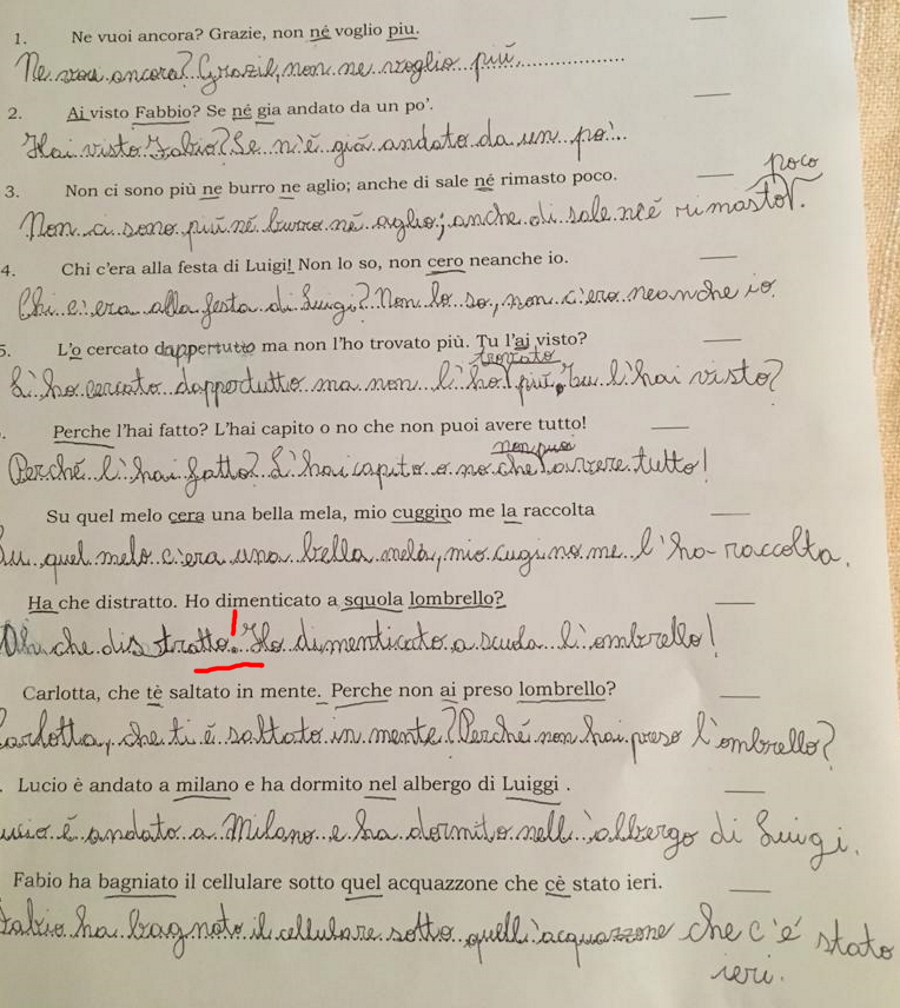 1. Ne vuoi ancora? Grazie, non né voglio piu.
Ne vuoi ancora? Grazie, non ne voglio più.
2. Ai visto Fabbio? Se né gia andato da un po'.
Hai visto Fabio? Se n'è già andato da un po'.
3. Non ci sono più ne burro ne aglio; anche di sale né rimasto poco.
poco
Non ci sono più né burro né aglio; anche di sale n'è rimasto.
4. Chi c'era alla festa di Luigi! Non lo so, non cero neanche io.
Chi c'era alla festa di Luigi? Non lo so, non c'ero neanche io.
5. L'o cercato dappertutto ma non l'ho trovato più. Tu l'ai visto?
trovato
L'ho cercato dappertutto ma non l'ho più. Tu l'hai visto?
. Perche l'hai fatto? L'hai capito o no che non puoi avere tutto!
non puoi
Perché l'hai fatto? L'hai capito o no che avere tutto!
Su quel melo cera una bella mela, mio cuggino me la raccolta
Su quel melo c'era una bella mela, mio cugino me l'ha raccolta.
Ha che distratto. Ho dimenticato a squola lombrello?
!
Oh che distratto. Ho dimenticato a scuola l'ombrello!
Carlotta, che tè saltato in mente. Perche non ai preso lombrello?
Carlotta, che ti è saltato in mente? Perché non hai preso l'ombrello?
. Lucio è andato a milano e ha dormito nel albergo di Luiggi .
ucio è andato a Milano e ha dormito nell'albergo di Luigi.
Fabio ha bagniato il cellulare sotto quel acquazzone che cè stato ieri.
Fabio ha bagnato il cellulare sotto quell'acquazzone che c'è stato
ieri.